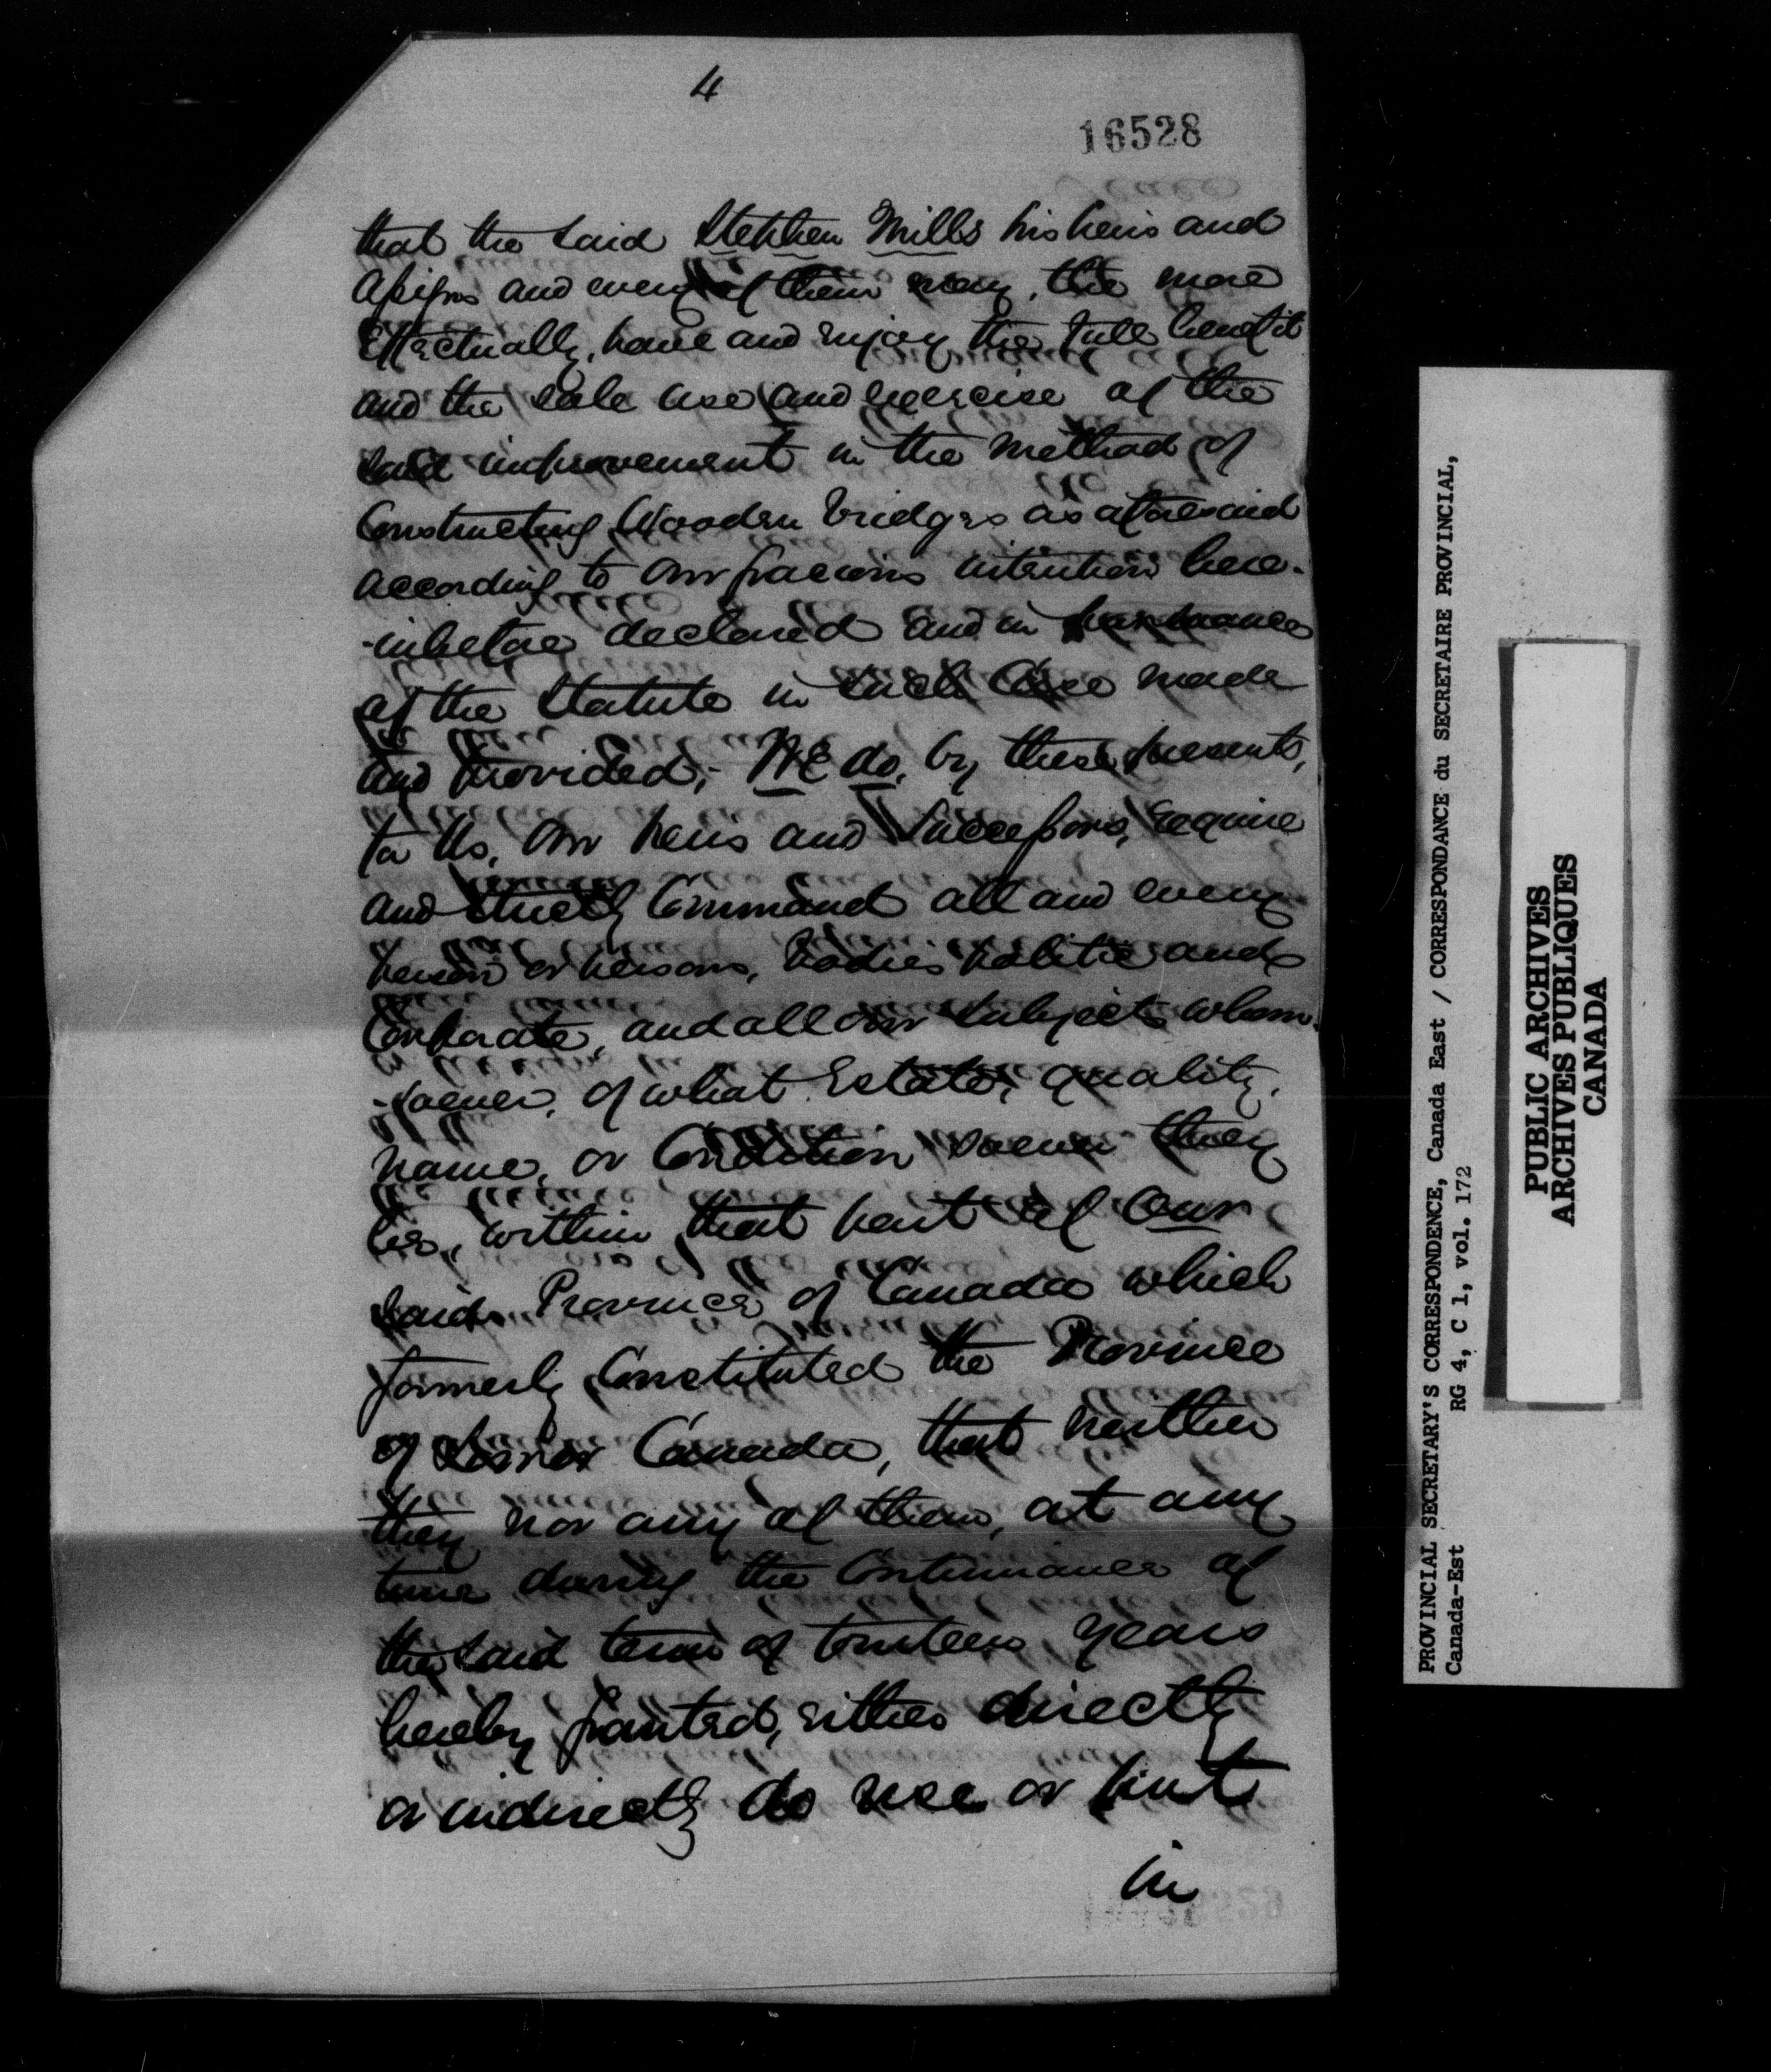 4
16528
that the said Stephen Mills his heirs and
Assigns and every of them may, the more
Effectually, have and enjoy the full benefit
and the sole use and exercise of the
said improvement in the method of
Constructing Wooden bridges as aforesaid
according to Our gracious intention here-
-inbefore declared and in pursuance
of the Statute in such Case made
and provided;- WE do, by these presents,
for Us, Our heirs and Successors, require
and strictly Command all and every
person or persons, bodies politic and
Corporate, and all our Subjects whom-
-soever, of what Estate, quality,
name, or Condition soever they
be, within that part of Our
said Province of Canada which
formerly Constituted the Province
of Lower Canada, that neither
they nor any of them, at any
time during the Continuance of
the said term of fourteen years
hereby granted, either directly
or indirectly do use or put
in
PROVINCIAL SECRETARY'S CORRESPONDENCE, Canada East / CORRESPONDANCE du SECRETAIRE PROVINCIAL,
Canada-Est RG 4, C 1, vol. 172
PUBLIC ARCHIVES
ARCHIVES PUBLIQUES
CANADA